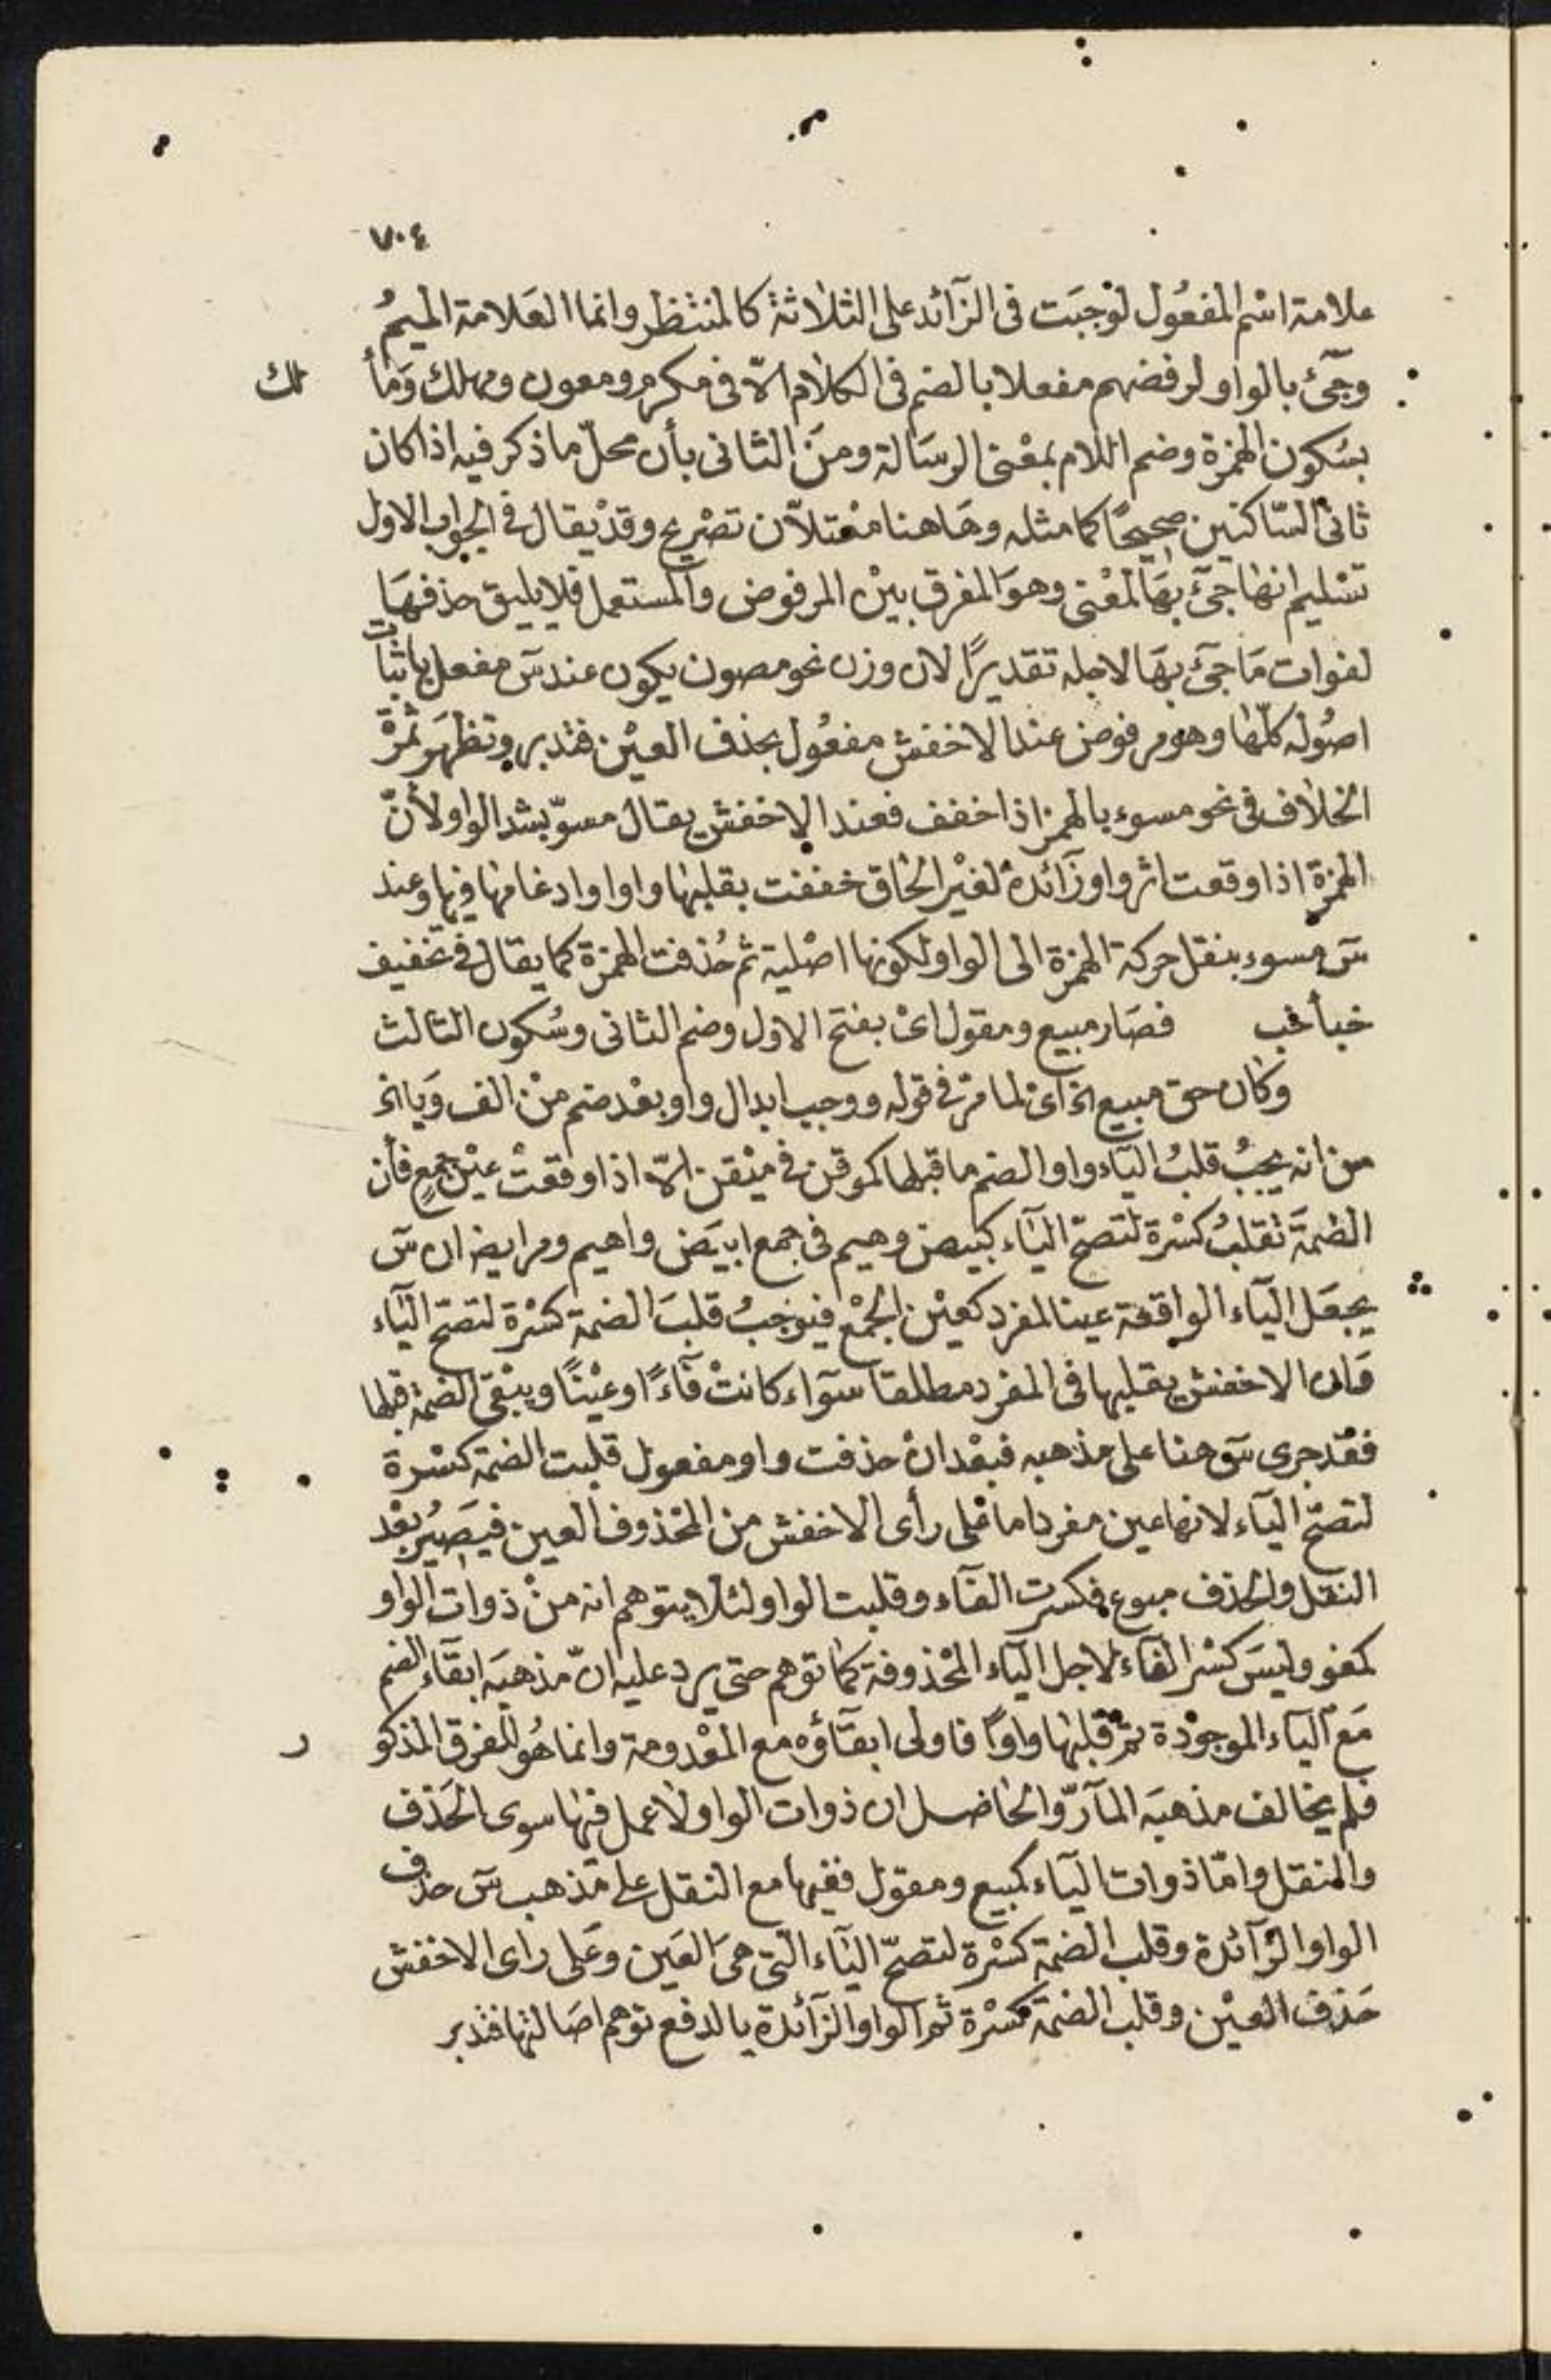 ٧٠٤
علامة اسْم المفعُول لوْجبَت فى الزآئد على الثلاثة كالمنتظر وانما العَلامة الميمُ
وجَئ بالواو لرفضهم مفعلا بالضم فى الكلام الّا فى مكرم ومعون ومهلك وَمأ لك
بسُكون الهمزة وضم اللام بمعْنى الرسَالة ومنَ الثانى بأن محلّ ما ذكر فيه اذا كان
ثانى السّاكنين صحيحًا كما مثله وهَاهنا معْتلاّن تصْريح وقدْ يقال فى الجواب الاول
تسْليم انها جئ بهَا لمعْنى وهوَ المفرق بيْن المرفوض والمستعمل فلا يليق حذفهَا
لفوات مَا جئ بهَا لاجله تقديرًا لان وزن نحو مصون يكون عند سَ مفعل باثبات
اصُوله كلّها وهو مرفوض عند الاخفش مفعُول بحذف العيْن فتدبر وتظهَر ثمرْة
الخلاف فى نحو مسوء بالهمز اذا خفف فعند الاخفش يقال مسوّ بشد الواو لأنّ
الهمزة اذا وقعت اثر واو زآئدة لغيْر الحاق خففت بقلبها واوا وادغامها فيها وعند
سَ مسوء بنقل حركة الهمزة الى الواو لكونها اصْلية ثم حُذفت الهمزة كما يقال فى تخفيف
خبأ خب فصَار مبيع ومقول اىْ بفتح الاول وضم الثانى وسُكون الثالث
وكان حق مبيع الخ اى لما مرّ فى قوله ووجب ابدال واو بعْد ضم منْ الف وَيا الخ
من انه يجبُ قلبُ اليآء واوا لضم ما قبلها كموقن فى ميْقن الّا اذا وقعتْ عيْن جمعٍ فأن
الضمةَ تقلبُ كسْرة لتصحّ اليآء كبيض وهيم فى جمع ابيَض واهيم ومر ايضا ان سَ
يجعَل اليآء الواقعة عينا لمفرد كعيْن الجمْع فيوجبُ قلبَ الضمة كسْرة لتصح اليآء
وَان الاخفش يقلبها فى المفرد مطلقا سوآء كانتْ فآءً او عيْنًا ويبْقى الضمة قبلها
فقْد جرى سَ هنا على مذهبه فبعْد انْ حذفت واو مفعول قلبت الضمة كسْرة
لتصحّ اليآء لانها عين مفرد اما عْلى رأى الاخفش من المحْذوف العين فيَصِيُر بعْد
النقل والحذف مبوع فكسرت الفآء وقلبت الواو لئلا يتوهم انه منْ ذوات الواو
كمغو وليسَ كسْر الفاء لاجل اليآء المحْذوفة كما توهم حتى يرد عليه انّ مذهبَه ابقآء الضم
مَع اليآء الموجوْدة ثم قلبها واوًا فاولى ابقآؤه مع المعْدومة وانما هُو للفرق المذكو ر
فلم يخالف مذهبَه المآرّ والحاصل ان ذوات الواو لا عمل فيها سوى الحَذف
والنقل وامّا ذوات اليآء كمبيع ومقول ففيها مع النقل على مَذهب سَ حذف
الواو الزآئدة وقلب الضمة كسْرة لتصحّ اليآء التى هىَ العَين وعَلى راى الاخفش
حَذف العيْن وقلب الضمة كسْرة ثم الواو الزآئدة يا لدفع توهم اصَالتها فتدبر